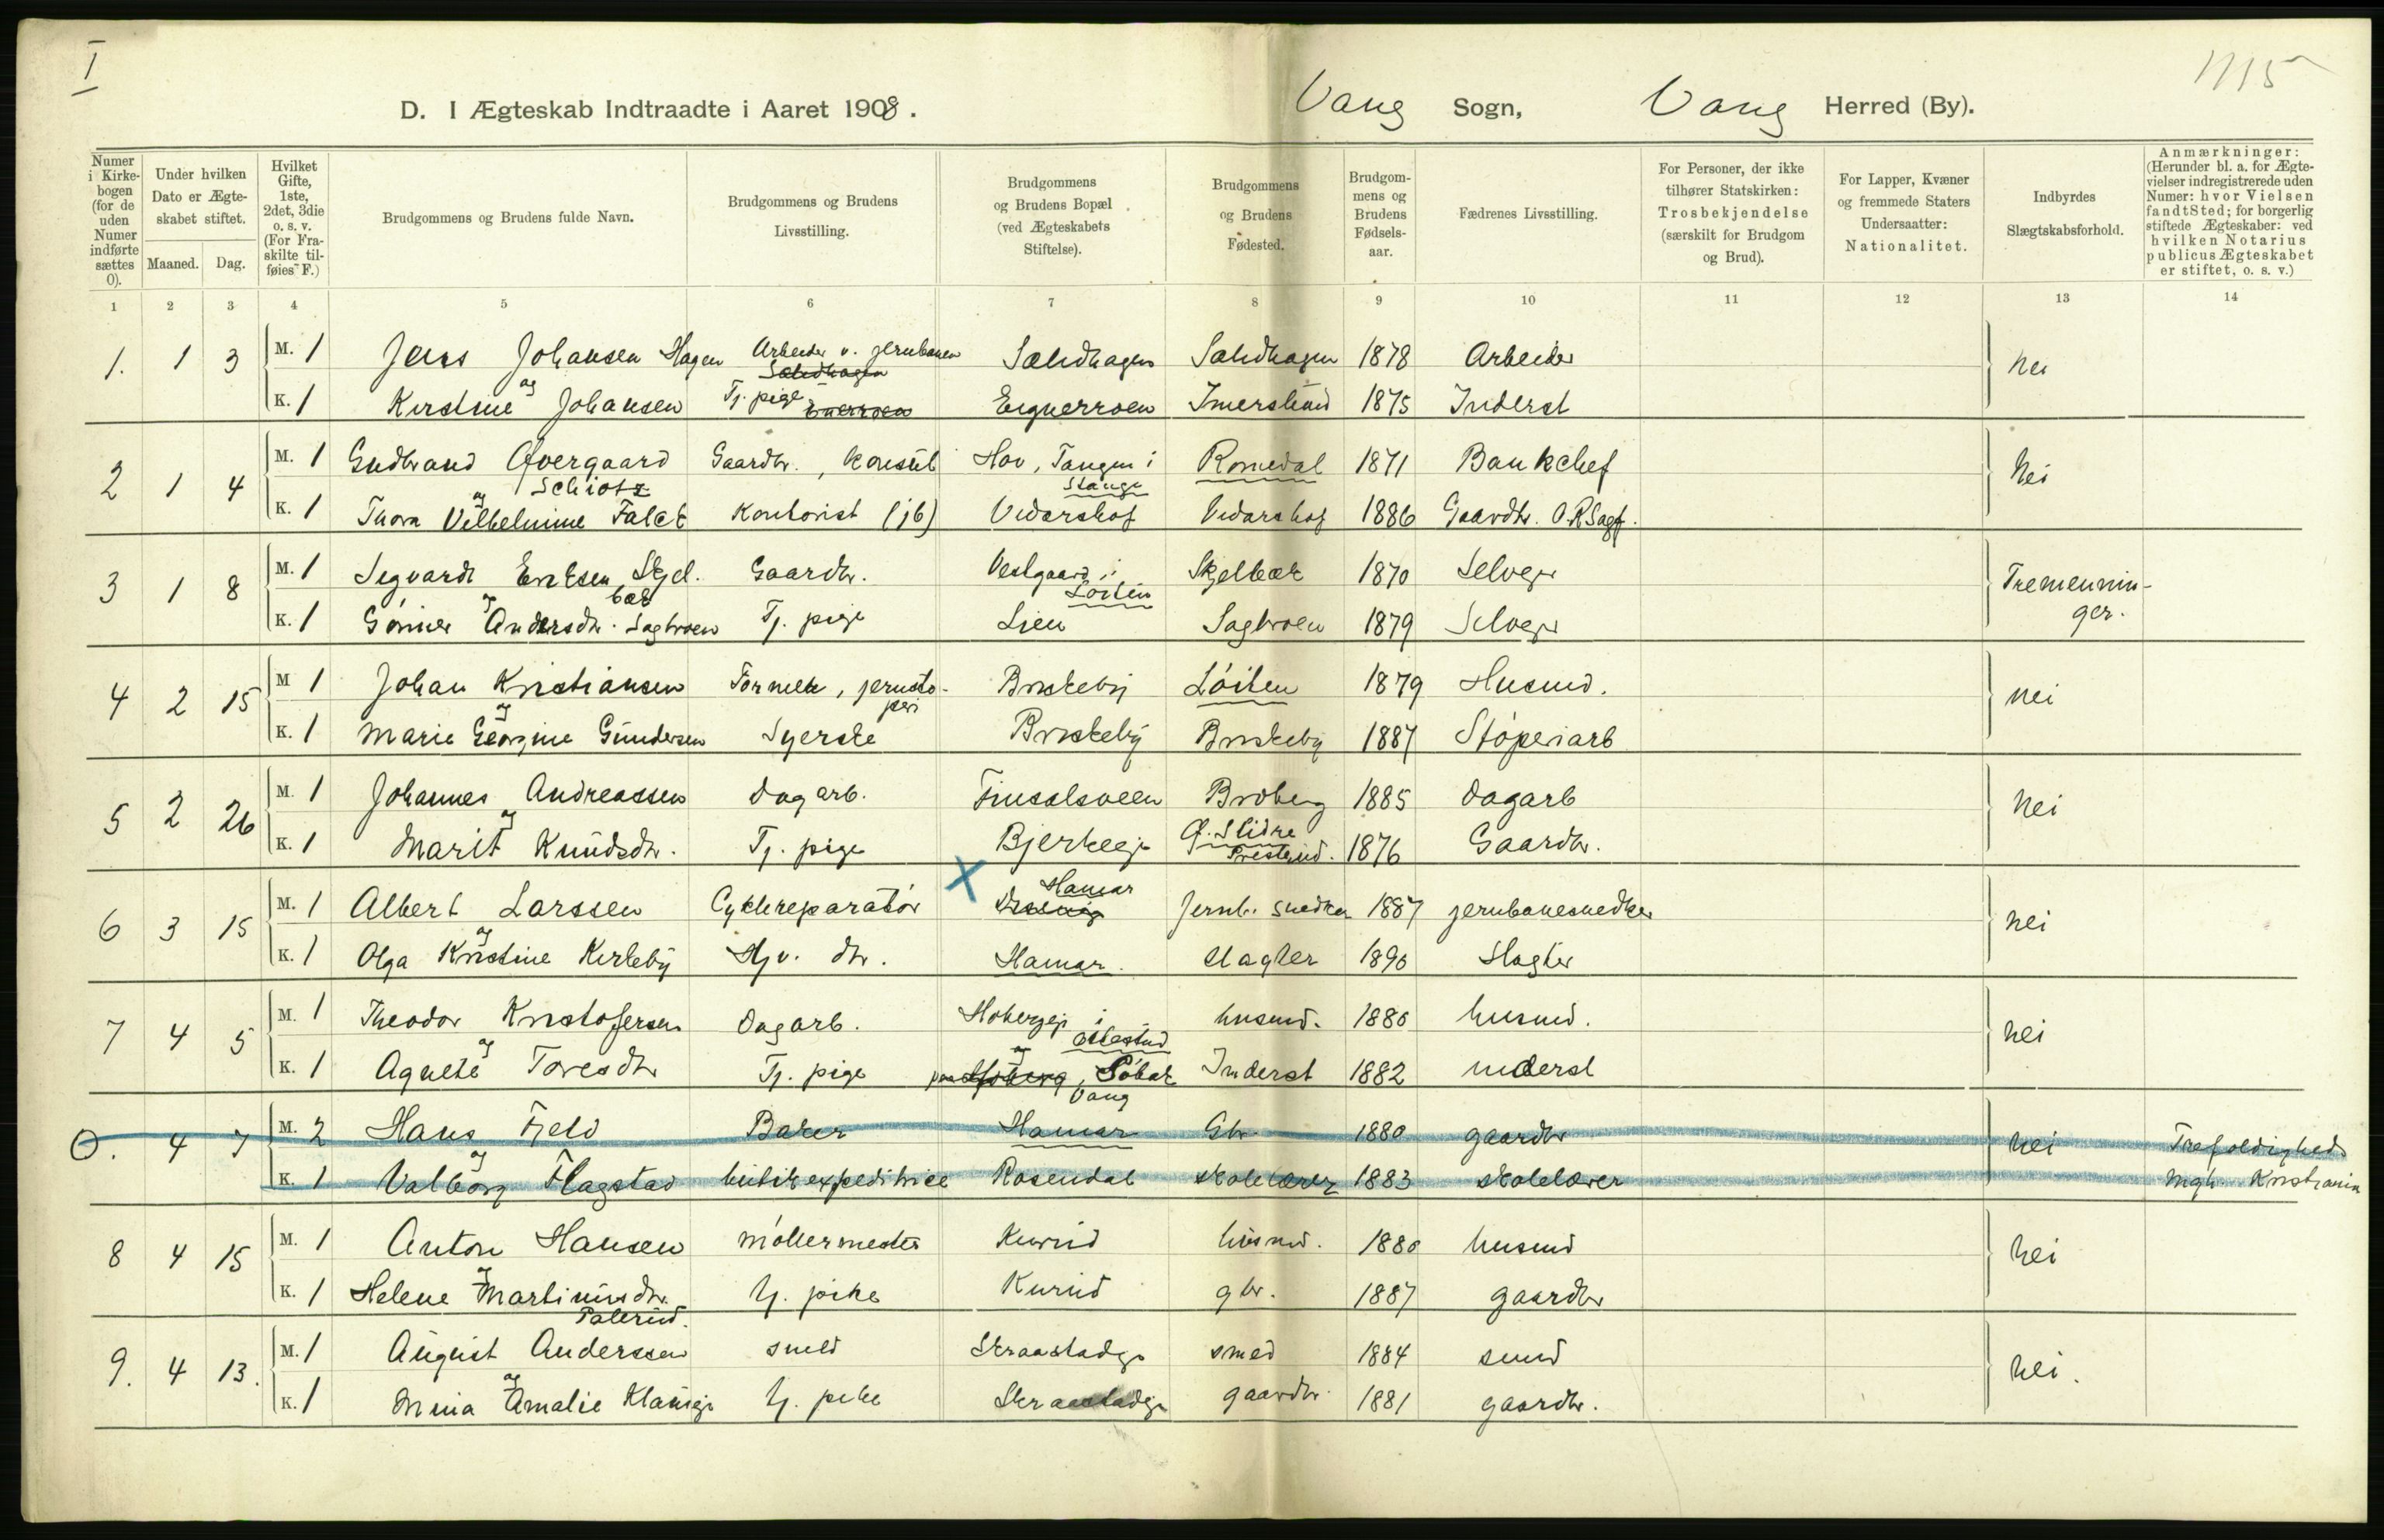 I
1115
D. I Ægteskab Indtraadte i Aaret 1908. Vang Sogn, Vang Herred (By).
Numer i Kirkebogen (for de uden Numer indførte sættes 0).
Under hvilken Dato er Ægteskabet stiftet.
Maaned. Dag.
Hvilket Gifte, 1ste, 2det, 3die o. s. v. (For Fraskilte tilføies F.)
Brudgommens og Brudens fulde Navn.
Brudgommens og Brudens Livsstilling.
Brudgommens og Brudens Bopæl (ved Ægteskabets Stiftelse).
Brudgommens og Brudens Fødested.
Brudgommens og Brudens Fødselsaar.
Fædrenes Livsstilling.
For Personer, der ikke tilhører Statskirken: Trosbekjendelse (særskilt for Brudgom og Brud).
For Lapper, Kvæner og fremmede Staters Undersaatter: Nationalitet.
Indbyrdes Slægtskabsforhold.
Anmærkninger: (Herunder bl. a. for Ægtevielser indregistrerede uden Numer: hvor Vielsen fandt Sted; for borgerlig stiftede Ægteskaber: ved hvilken Notarius publicus Ægteskabet er stiftet, o. s. v.)
1 2 3 4 5 6 7 8 9 10 11 12 13 14
1. 1 3 M. 1 Jens Johansen Hagen Arbeider v. jernbanen Sælidhagen Sælidhagen 1878 Arbeider nei
og
K. 1 Kirstine Johansen Tj. pige Enerroen 1875 Inderst
2 1 4 M. 1 Gudbrand Overgaard Schiøtz Gaardbr., konsul Hov, Tangen i Stange Romedal 1871 Bankchef Nei
og
K. 1 Thora Vilhelmine Falck Kontorist (jb) Vidarshof Vidarshof 1886 Gaardbr. O.R.Sagf.
3 1 8 M. 1 Sigvardt Eriksen Skjelbæk Gaardbr. Vestgaard i Løiten Skjelbæk 1870 Selveier Tremenninger.
og
K. 1 Gunner Andersdtr. Sagbroen Tj. pige Lien Sagbroen 1879 Selveier
4 2 15 M 1 Johan Kristiansen Former, jernstøperi Briskeby Løiten 1879 Husmd. nei
og
K. 1 Marie Georgine Gundersen Syerske Briskeby Briskeby 1887 Støperiarb
5 2 26 M. 1 Johannes Andreassen Dagarb. Finsalsveen Broberg 1885 Dagarb Nei
og
K. 1 Marit Knudsdtr. Tj. pige Bjerkeeie Ø. Slidre 1876 Gaardbr.
6 3 15 M. 1 Albert Larssen Cyklereparatør X Hamar Jernb. snedker 1887 jernbanesnedker nei
og
K. 1 Olga Kristine Kirkeby Hjv. dtr. Hamar. slagter 1890 Slagter
7 4 5 M. 1 Theodor Kristofersen Dagarb. Hobergeie i Ottestad husmd. 1880 husmd. nei
og
K. 1 Agnete Toresdtr Tj. pige Vang Inderst 1882 inderst
0. 4 7 M. 2 Hans Fjeld Baker Hamar Gbr. 1880 gaardbr nei Trefoldigheds
og
K. 1 Valborg Flagstad butikexpeditrice Rosendal skolelærer 1883 skolelærer mgh. Kristiania
8 4 15 M. 1 Anton Hansen møllermester Kurud husmd. 1880 husmd nei
og
K. 1 Helene Martinusdtr. Palerud. tj. pike Kurud gbr. 1887 gaardbr
9. 4 13. M. 1 August Anderssen smed Skraastadeie smed 1884 smed nei.
og
K. 1 Mina Amalie Klauseie tj. pike Skraastadeie gaardbr. 1881 gaardbr.